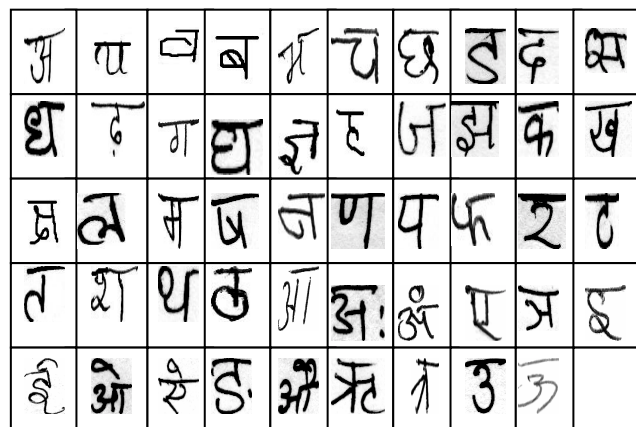 अ ण व ब भ च छ ड द क्ष
ध ढ़ ग घ ज्ञ ह ज झ क ख
ल म ष न ण प फ र ट
त श थ ठ आ अः ॐ ए ञ इ
ई ओ ऐ ङ औ ऋ त्र उ ऊ